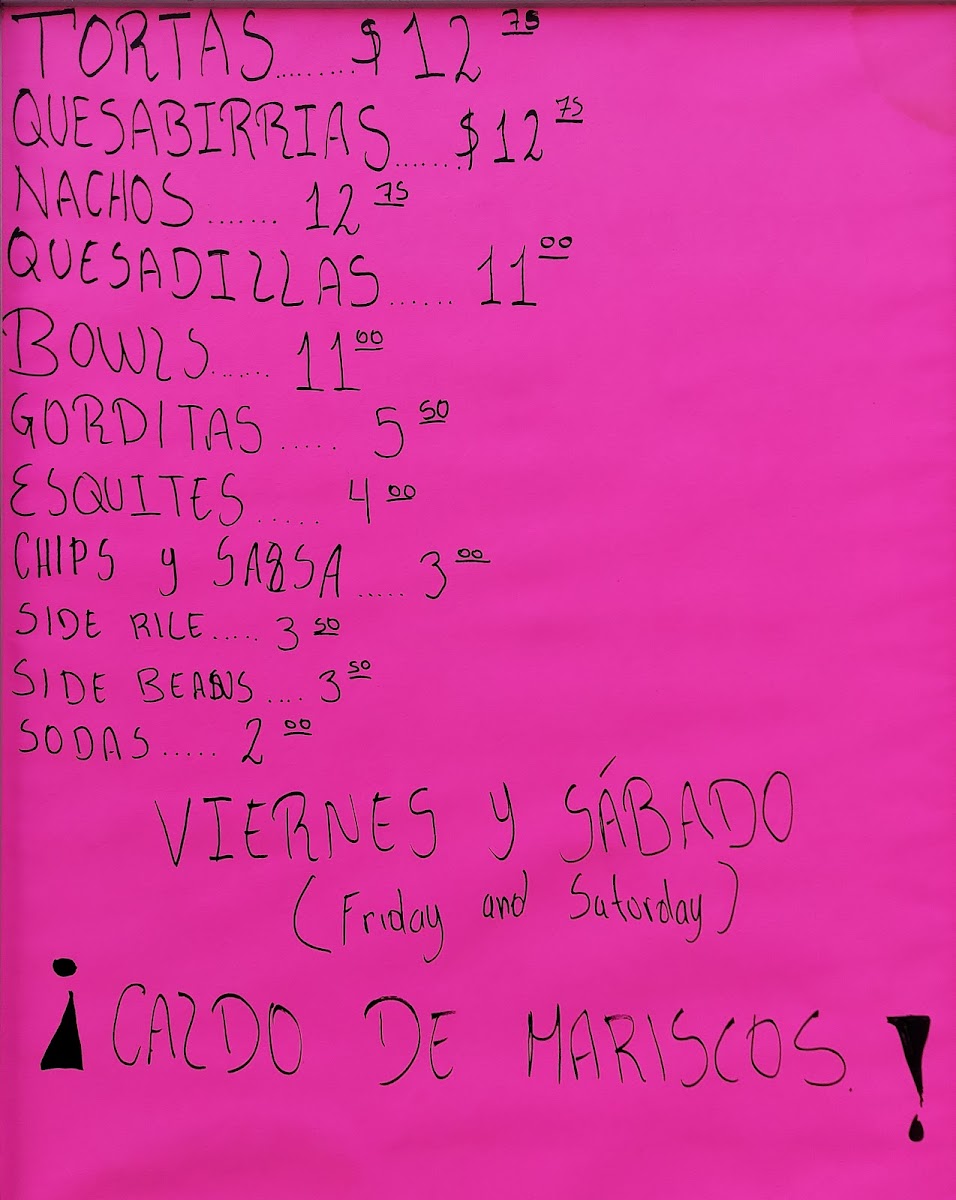 TORTAS........$12 75
QUESABIRRIAS......$12 75
NACHOS....... 12 75
QUESADILLAS...... 11 00
BOWLS...... 11 00
GORDITAS..... 5 50
ESQUITES..... 4 00
CHIPS y SALSA..... 3 00
SIDE RICE..... 3 50
SIDE BEANS.... 3 50
SODAS..... 2 00
VIERNES y SÁBADO
(Friday and Saturday)
¡CALDO DE MARISCOS.!